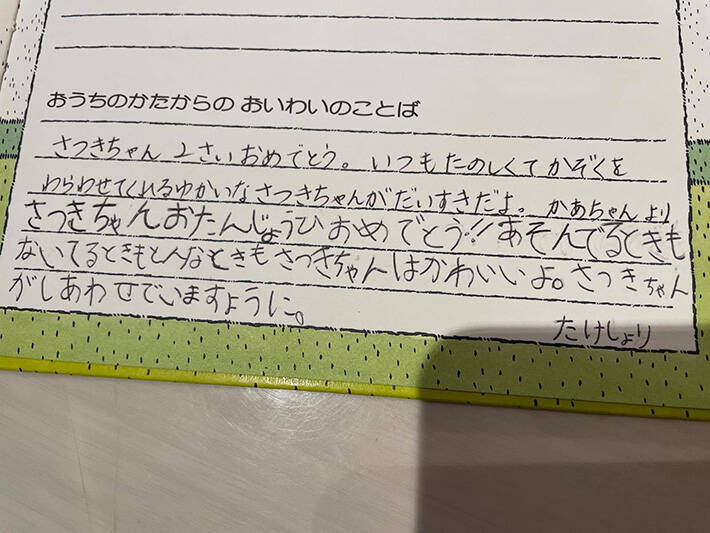 おうちのかたからの おいわいのことば
さつきちゃん 2さいおめでとう。いつもたのしくて かぞくを
わらわせてくれるゆかいなさつきちゃんがだいすきだよ。 かあちゃんより
さつきちゃんおたんじょうひおめでとう!!あそんでるときも
ないてるときもどんなときもさつきちゃんはかわいいよ。さつきちゃん
がしあわせでいますように。
たけしより